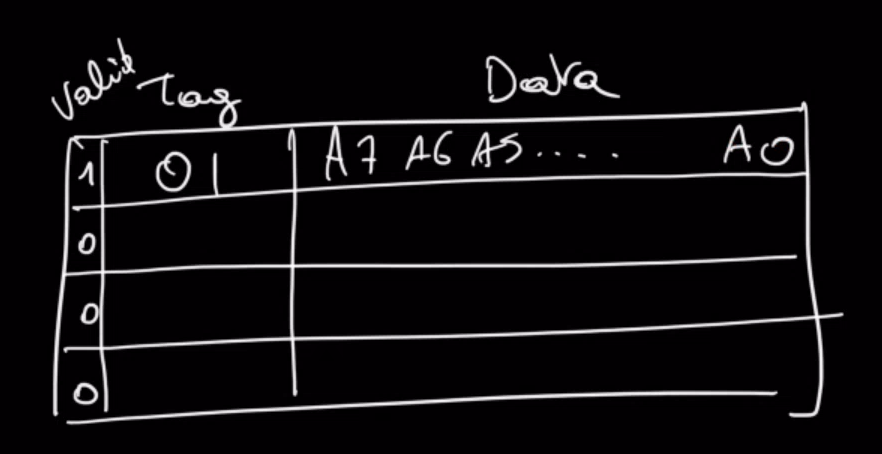 Valid Tag Data
1 01 A7 A6 A5..... A0
0
0
0